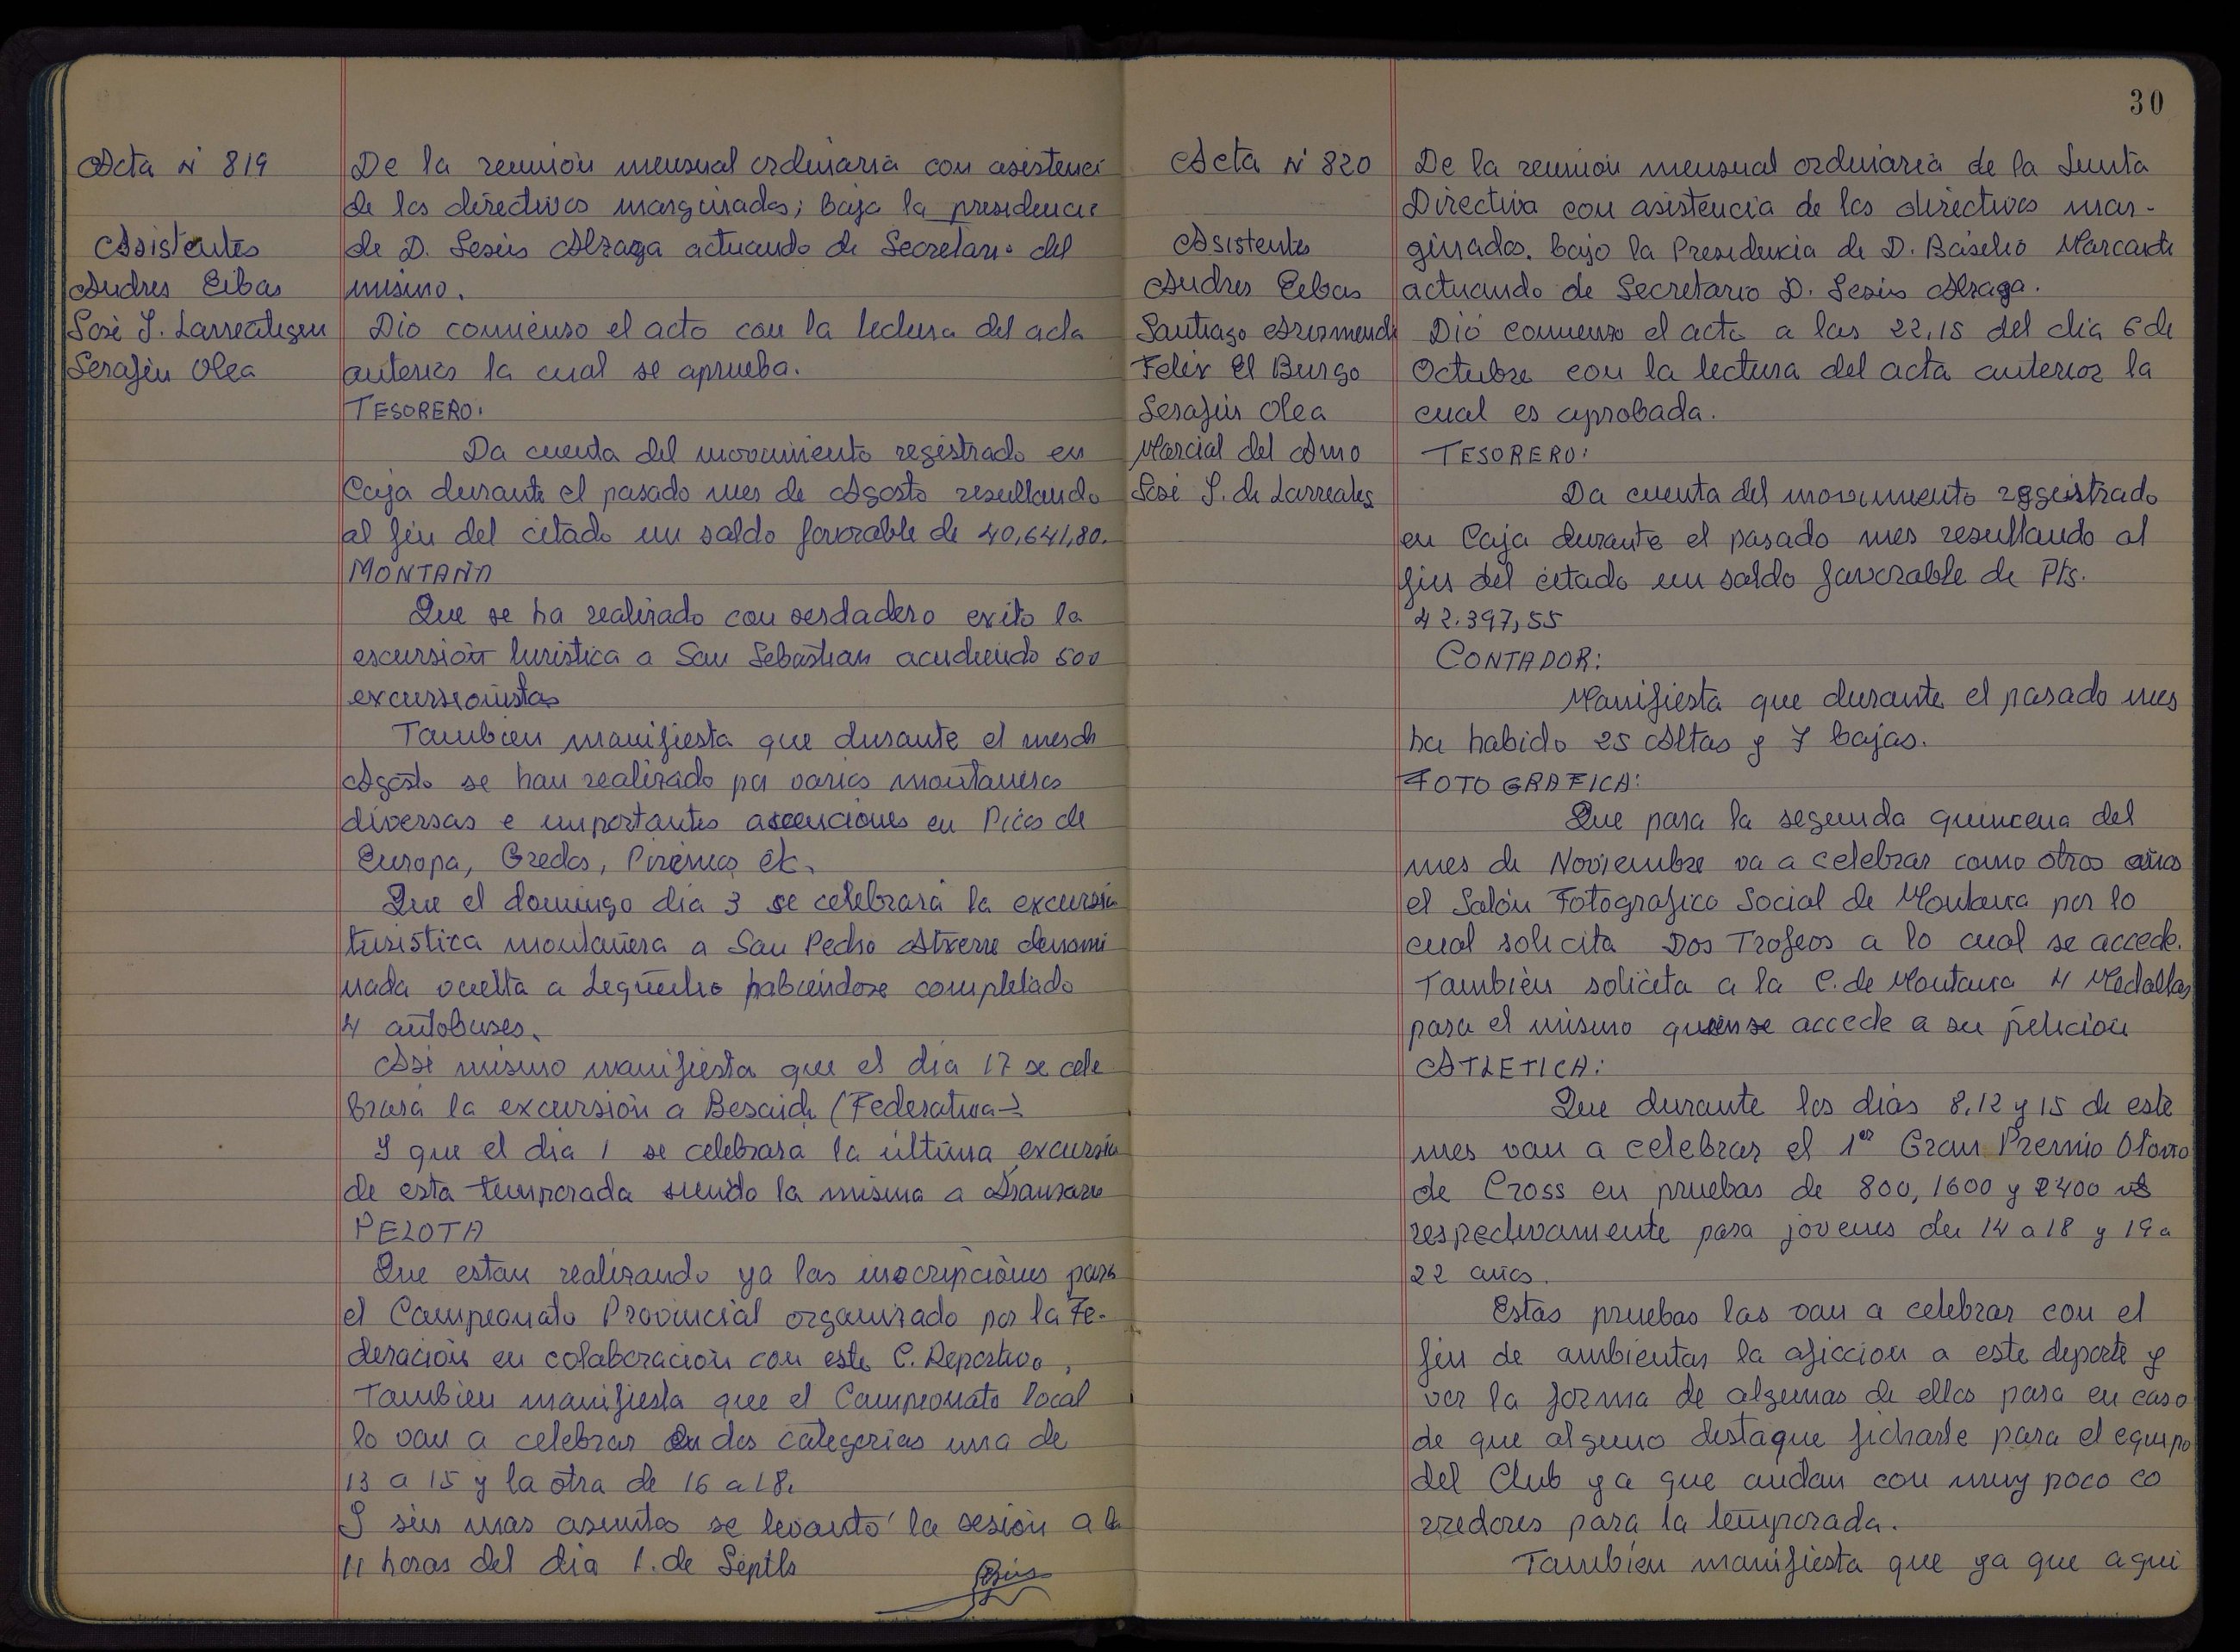 Acta N 819
Asistentes
Andres Eibas
José I. Larreategui
Serafin Olea
De la reunión mensual ordinaria con asistenci
de los directivos marginados; bajo la presidencia
de D. Jesús Alzaga actuando de Secretario del
mismo.
Dio comienso el acto con la lectura del acta
anterior la cual se aprueba.
TESORERO:
Da cuenta del movimiento registrado en
Caja durante el pasado mes de Agosto resultando
al fin del citado un saldo favorable de 40,641,80.
MONTAÑA
Que se ha realizado con verdadero exito la
escursión turistica a San Sebastian acudiendo 500
excursionistas
Tambien manifiesta que durante el mes de
Agosto se han realizado por varios montañeros
diversas e importantes ascenciones en Picos de
Europa, Gredos, Pirineos etc.
Que el domingo dia 3 se celebrará la excursión
turistica montañera a San Pedro Atxerre denomi
nada vuelta a Lequeitio habiendose completado
4 autobuses.
Asi mismo manifiesta que el dia 17 se cele
brará la excursión a Besaide (Federativa)
Y que el dia 1 se celebrará la última excursión
de esta temporada siendo la misma a
PELOTA
Que estan realizando ya las inscripciónes para
el Campeonato Provincial organizado por la Fe-
deración en colaboración con este C. Deportivo,
Tambien manifiesta que el Campeonato local
lo van a celebrar en dos categorias una de
13 a 15 y la otra de 16 a 18.
Y sin mas asuntos se levantó la sesión a la
11 horas del dia 1. de Septb
Jesús
30
Acta N 820
Asistentes
Andres Eibas
Santiago Arizmendi
Felix El Burgo
Serafin Olea
Marcial del Amo
José I. de Larreateg
De la reunión mensual ordinaria de la Junta
Directiva con asistencia de los directivos mar-
ginados. bajo la Presidencia de D. Basilio Marcaide
actuando de Secretario D. Jesús Alzaga.
Dió comienzo el acto a las 22,15 del dia 6 de
Octubre con la lectura del acta anterior la
cual es aprobada.
TESORERO:
Da cuenta del movimiento reggistrado
en Caja durante el pasado mes resultando al
fin del citado un saldo favorable de Pts.
42.397,55
CONTADOR:
Manifiesta que durante el pasado mes
ha habido 25 Altas y 7 bajas.
FOTOGRAFICA:
Que para la segunda quincena del
mes de Noviembre va a celebrar como otros años
el Salón Fotografico Social de Montaña por lo
cual solicita Dos Trofeos a lo cual se accede.
También solicita a la C. de Montaña 4 Medallas
para el mismo quien se accede a su peticion
ATLETICA:
Que durante los dias 8,12 y 15 de este
mes van a celebrar el 1er Gran Premio Otoño
de Cross en pruebas de 800, 1600 y 2400 ms
respectivamente para jovenes de 14 a 18 y 19 a
22 años.
Estas pruebas las van a celebrar con el
fin de ambientar la aficcion a este deporte y
ver la forma de algunas de ellos para en caso
de que alguno destaque ficharle para el equipo
del Club ya que andan con muy poco co
rredores para la temporada.
Tambien manifiesta que ya que aqui